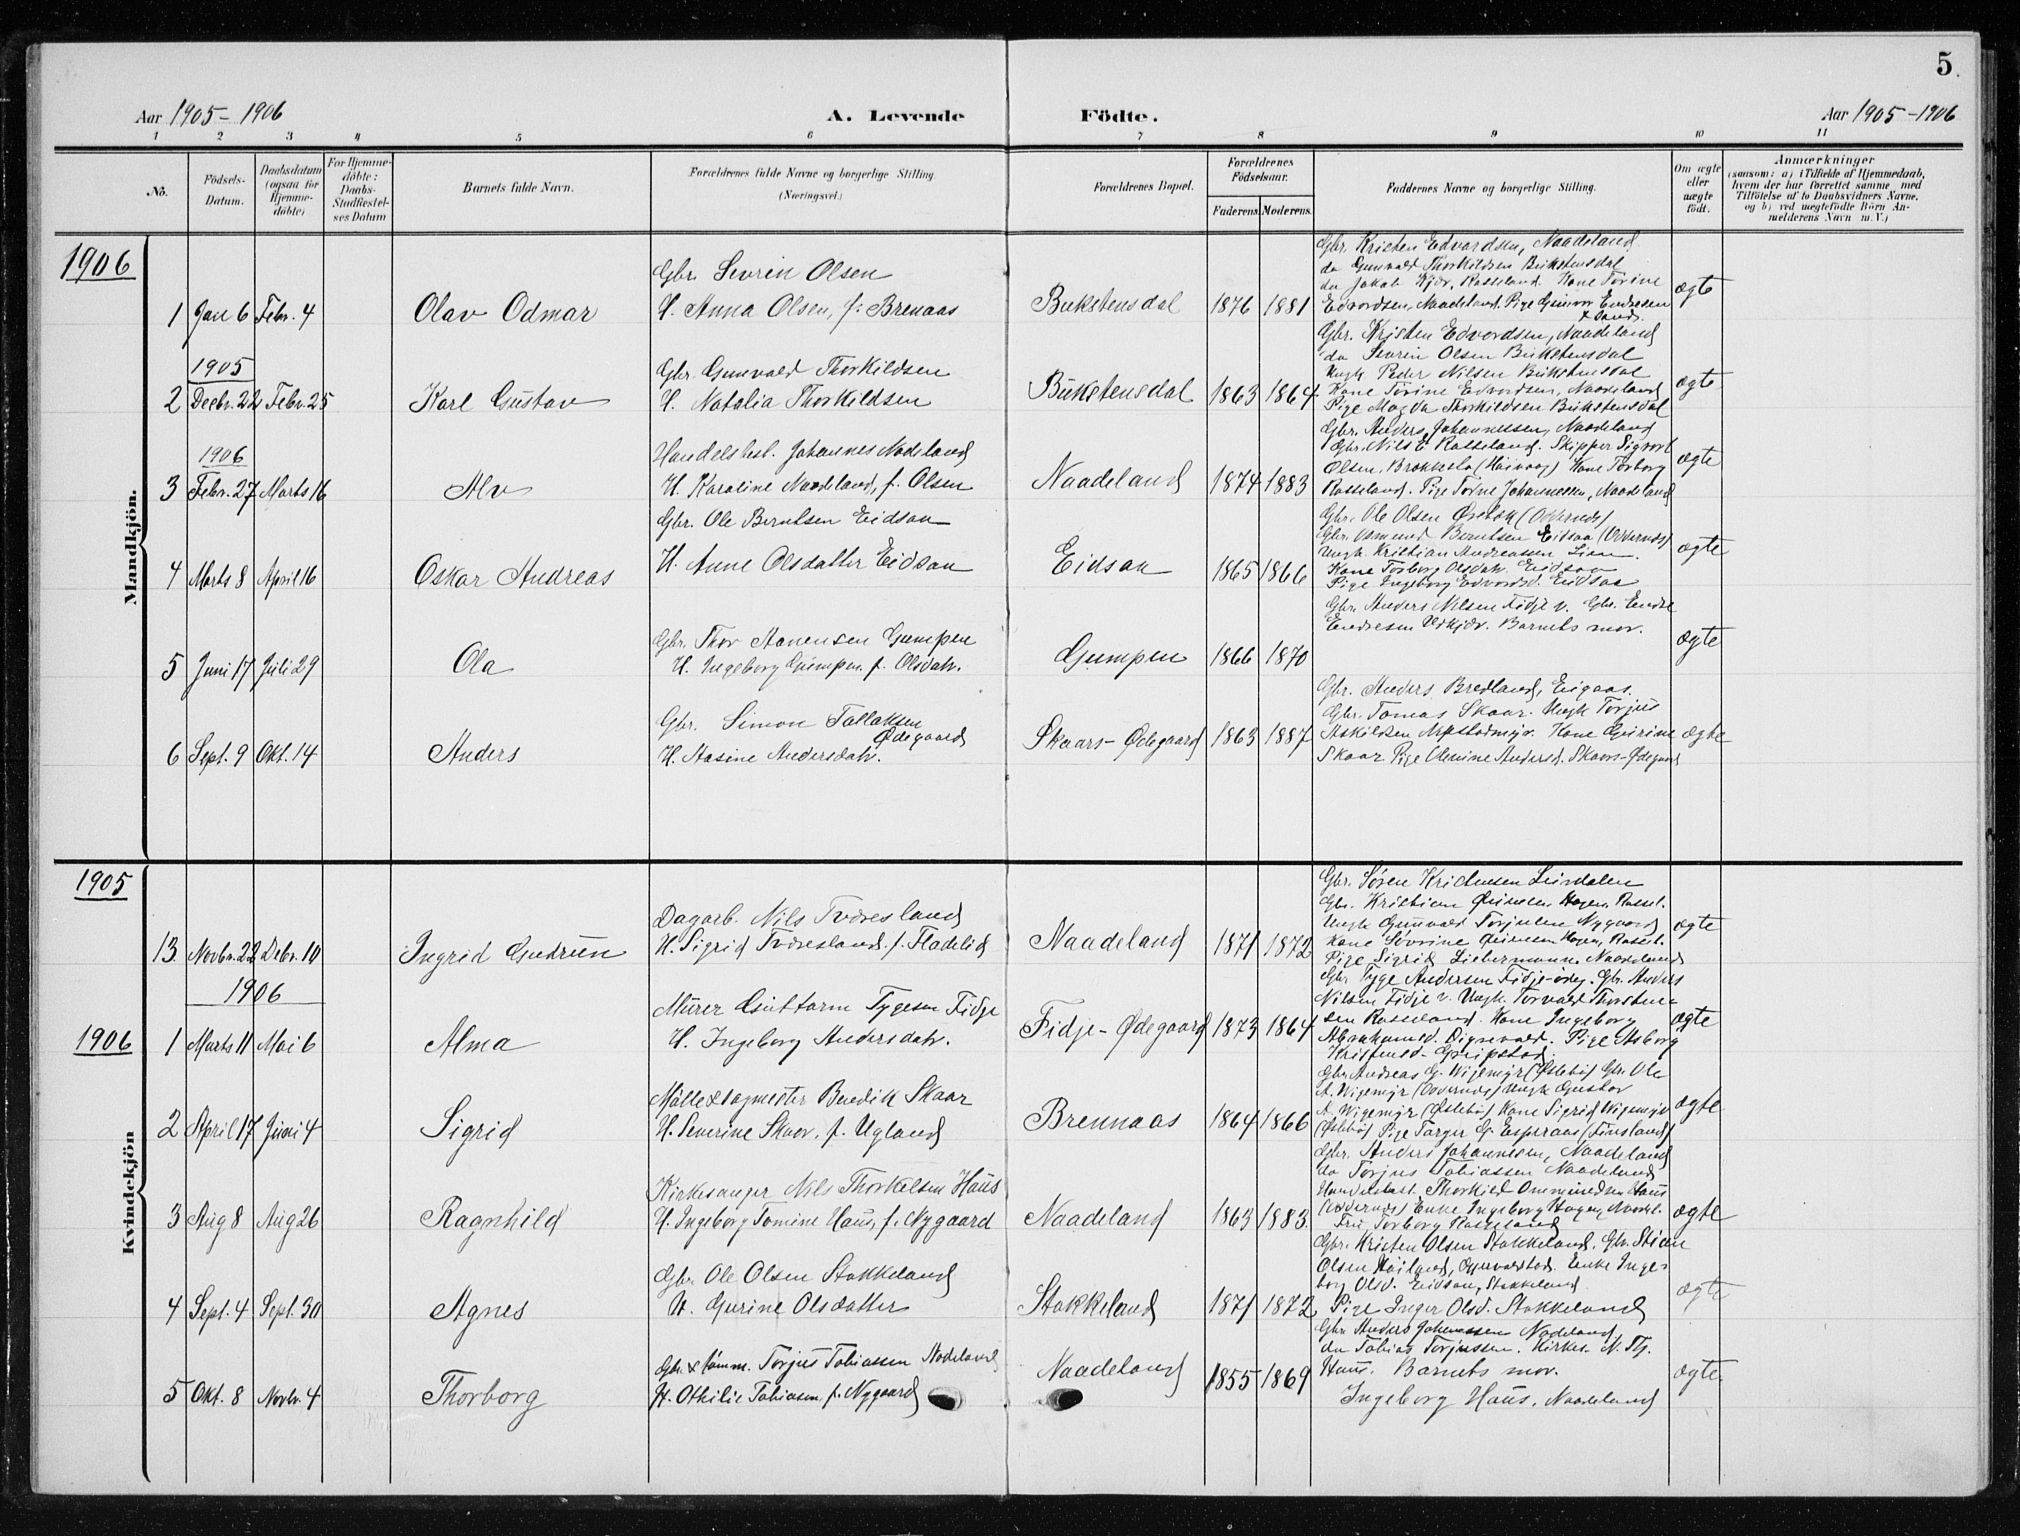 5
Aar 1905-1906
A. Levende
Födte.
Aar 1905-1906
1 2 3 4 5 6 7 8 9 10 11
No.
Födsels-Datum.
Daabsdatum (ogsaa for Hjemme-döbte)
For Hjemme-döbte: Daabs-Stadfæstel-ses Datum
Barnets fulde Navn.
Forældrenes fulde Navne og borgerlige Stilling. (Næringsvei.)
Forældrenes Bopæl.
Forældrenes Födselsaar.
Faderens. Moderens.
Faddernes Navne og borgerlige Stilling.
Om ægte eller uægte födt.
Anmærkninger
(saasom: a) i Tilfælde af Hjemmedaab, hvem der har forrettet samme, med Tilföielse af to Daabsvidners Navne, og b) ved uægtefödte Börn An-melderens Navn m. V.)
Mandkjön.
1906
Gbr. Kristen Edvardsen, Naadeland
Gbr. Sevrin Olsen
do Gunvald Thorkildsen Bukstensdal
do Jakob Kjær, Rosseland. Kone Torine
1 Jan 6 Febr. 4 Olav Odmar H. Anna Olsen, f. Brenaas Bukstensdal 1876 1881 Edvardsen, Naadeland. Pige Gunvor Endresen ægte
Gbr. Kristen Edvardsen, Naadeland
1905
do Sevrin Olsen Bukstensdal
Gbr. Gunvald Thorkildsen
Ungk Peder Nilsen Bukstensdal
2 Decbr. 22 Febr. 25 Karl Gustav H. Natalia Thorkildsen Bukstensdal 1863 1864 Kone Torine Edvardsen, Naadeland ægte
Pige Magda Thorkildsen Bukstensdal
1906
Gbr. Anders Johannessen, Naadeland
Handelsbest. Johannes Nodeland
Gbr. Nils E. Rosseland. Skipper Sigvort
Olsen, Brekkestø (Høivaag) Kone Torborg
3 Febr. 27 Marts 16 Alv H. Karoline Naadeland, f. Olsen Naadeland 1874 1883 Rosseland. Pige Torine Johannessen, Naadeland ægte
Gbr. Ole Berntsen Eidsaa
Gbr. Ole Olsen (Oddernes)
Gbr. Osmund Berntsen Eidsaa (Oddernes)
Ungk Kristian Andreassen Lien.
4 Marts 8 April 16 Oskar Andreas H. Anne Olsdatter Eidsaa Eidsaa 1865 1866 Kone Torborg Olsdatr. Eidsaa ægte
Pige Ingeborg Edvardsd. Eidsaa
Gbr. Anders Nilsen Fidje v. Gbr. Endre
Endresen Urkjær. Barnets mor.
Gbr. Thor Aanensen Gumpen
5 Juni 17 Juli 29 Ola H. Ingeborg Gumpen f. Olsdatr. Gumpen 1866 1870 ægte
Gbr. Anders Bredland, Eigaas.
Gbr. Simon Tallaksen Ødegaard
Gbr. Tomas Skaar. Ungk Torjus
6 Sept. 9 Okt. 14 Anders H. Aasine Andersdatr. Skaars-Ødegaard 1863 1887 Kone Gurine ægte
Skaar Pige Olemine Andersd. Skaars-Ødegaard
Kvindekjön
1905
Gbr. Søren Kristensen
Dagarb. Nils Tveresland
Ungk Gunvald Torjusen Nygaard
13. Novbr. 22 Debr. 10 Ingrid Gudrun H. Sigrid Tveresland f. Flodelid Naadeland 1871 1872 Kone Sovrine Hagen, Rossel. ægte
Pige Sigrid Liebermann Naadeland
1906
Gbr. Tyge Andersen Fidje-ødeg. Gbr. Anders
Murer Guttorm Tygesen Fidje
Nilsen Fidje v. Ungk. Torvald Thorsten-
sen Rosseland. Kone Ingeborg
1906
1 Marts 11 Mai 6 Alma H. Ingeborg Andersdatr. Fidje-Ødegaard 1873 1864 Abrahamsd. Digrevald. Pige Asborg ægte
Kristensd. Gripstad.
Gbr. Andreas G. Wigemyr (Øslebø) Gbr. Ole
Mølle & sagmester Benedik Skaar
A. Wigemyr (Oddernes) Ungk Gustav
2 April 17 Juni 4 Sigrid H. Severine Skaar, f. Ugland Brennaas 1864 1866 A. Wigemyr (Øslebø) Kone Sigrid Wigemyr ægte
(Øslebø) Pige Targer G. Esperaas (Finsland)
Gbr. Anders Johannesen, Naadeland
do Torjus Tobiassen Naadeland
Kirkesanger Nils Thorkelsen Haus
Handelsbest. Thorkild Ommundsen Haus
3 Aug 8 Aug 26 Ragnhild H. Ingeborg Tomine Haus, f. Nygaard Naadeland 1863 1883. (Oddernes) Enke Ingeborg Hagen, Nodel. ægte
Fru Torborg Rosseland
Gbr. Kristen Olsen Stokkeland. Gbr. Stian
Gbr. Ole Olsen Stokkeland
Olsen Høiland, Gunvalstad. Enke Inge-
borg Olsd. Eidsaa, Stokkeland
4 Sept. 4 Sept. 30 Agnes H. Gurine Olsdatter Stokkeland 1871 1872 Pige Inger Olsd. Stokkeland ægte
Gbr. Anders Johannessen Nodeland
Gbr & tømm. Torjus Tobiassen Nodeland
do Tobias Torjussen. Kirkes. N. Th.
Haus. Barnets mor.
5 Okt. 8 Novbr. 4 Thorborg H. Othilie Tobiasen f. Nygaard Naadeland 1855 1869 ægte.
Ingeborg Haus, Naadeland